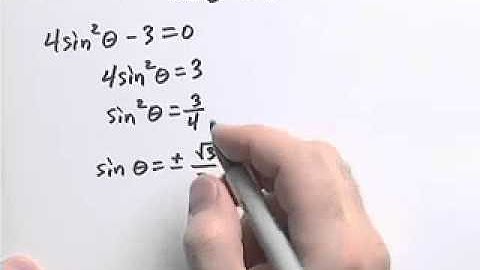 4sin²θ - 3 = 0
4sin²θ = 3
sin²θ = 3/4
sin θ = ± √3